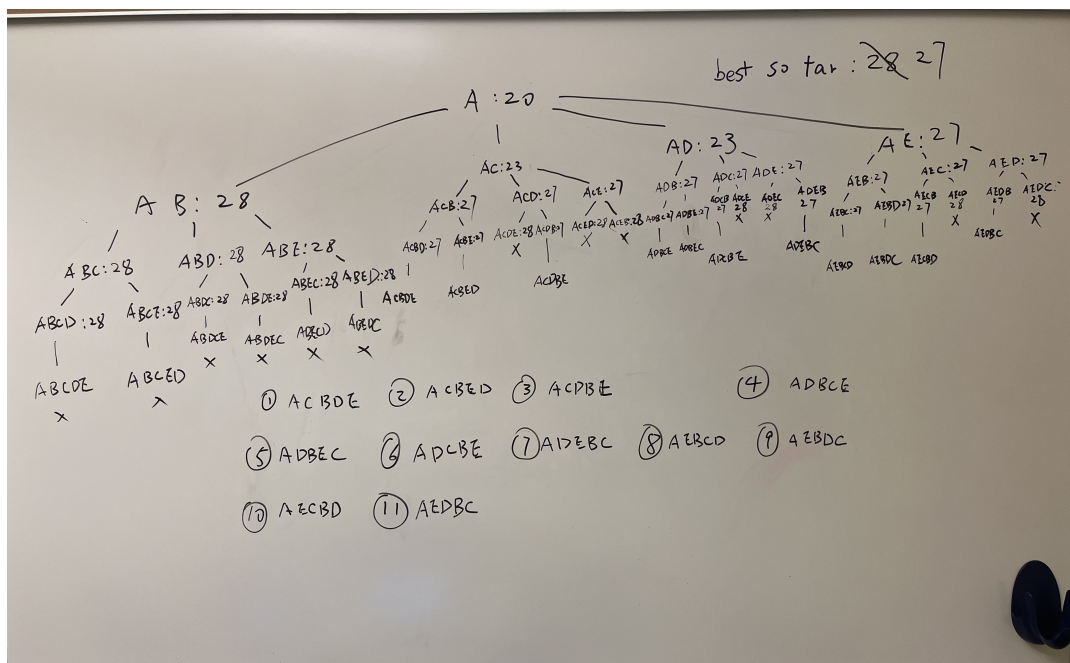 best so far : 28 27
A : 20
AB: 28
AC:23
AD: 23
AE: 27
ABC:28
ABD: 28
ABE: 28
ACB:27
ACD: 27
ACE: 27
ADB: 27
ADC: 27
ADE: 27
AEB: 27
AEC: 27
AED: 27
ABCD:28
ABCE:28
ABDC: 28
ABDE:28
ABEC:28
ABED:28
ACBD: 27
ACBE: 27
ACDE: 28
ACDB:27
ACED: 28
ACEB: 28
ADBC:27
ADBE: 27
ADCB 27
ADCE 28
ADEC 28
ADEB 27
AEBC: 27
AEBD: 27
AECB 27
AECD 28
AEDB 27
AEDC: 28
x x x x x x
ABCDE
ABCED
ABDCE
ABDEC
ABEDC
ACBDE
ACBED
ACDBE
ADBCE
ADBEC
ADCBE
ADEBC
AEBCD
AEBDC
AECBD
AEDBC
x x x x x x
① ACBDE ② ACBED ③ ACDBE ④ ADBCE
⑤ ADBEC ⑥ ADCBE ⑦ ADEBC ⑧ AEBCD ⑨ AEBDC
⑩ AECBD ⑪ AEDBC